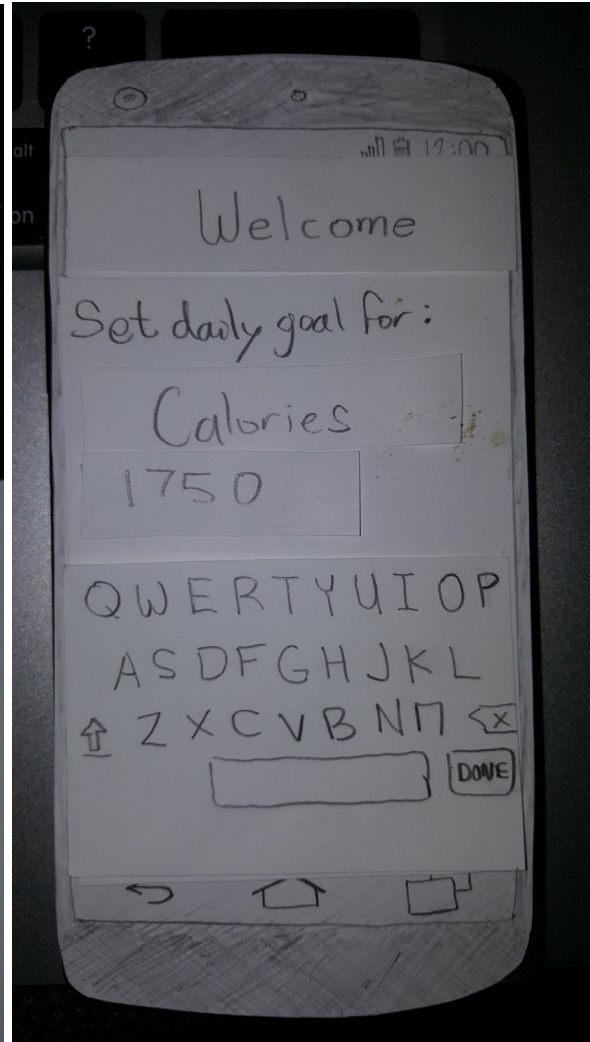 ?
alt
on
12:00
Welcome
Set daily goal for:
Calories
1750
QWERTYUIOP
ASDFGHJKL
ZXCVBNM
X
DONE